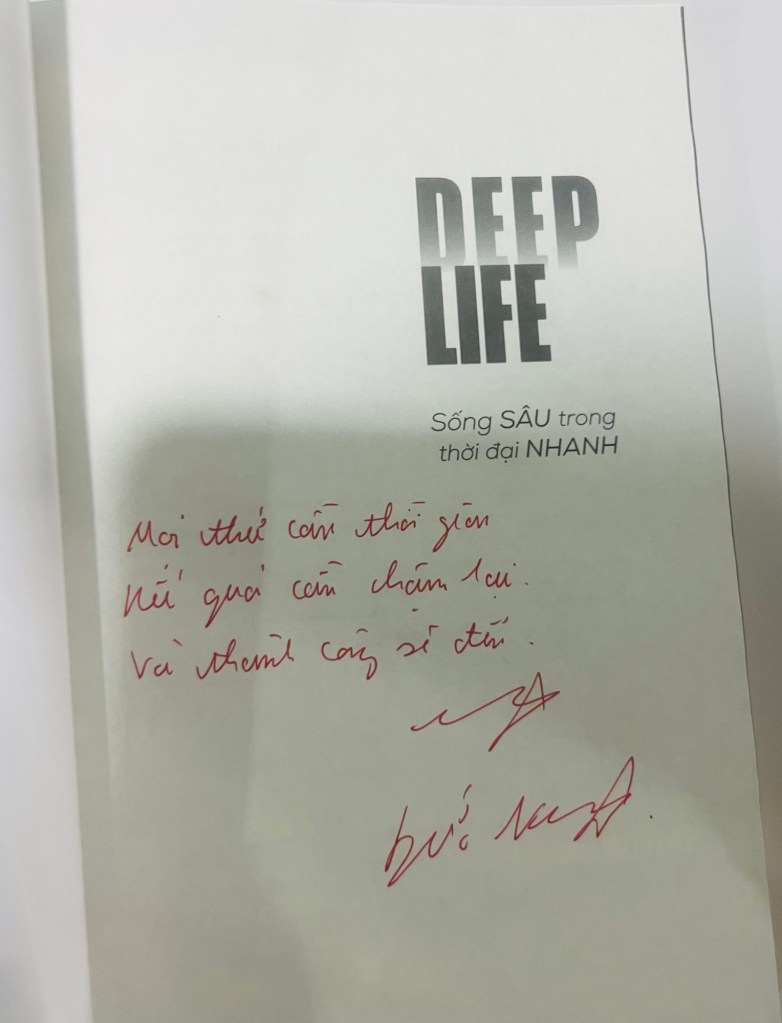 DEEP
LIFE
Sống SÂU trong
thời đại NHANH
Mọi thứ cần thời gian
Kết quả cần chậm lại.
Và thành công sẽ đến.